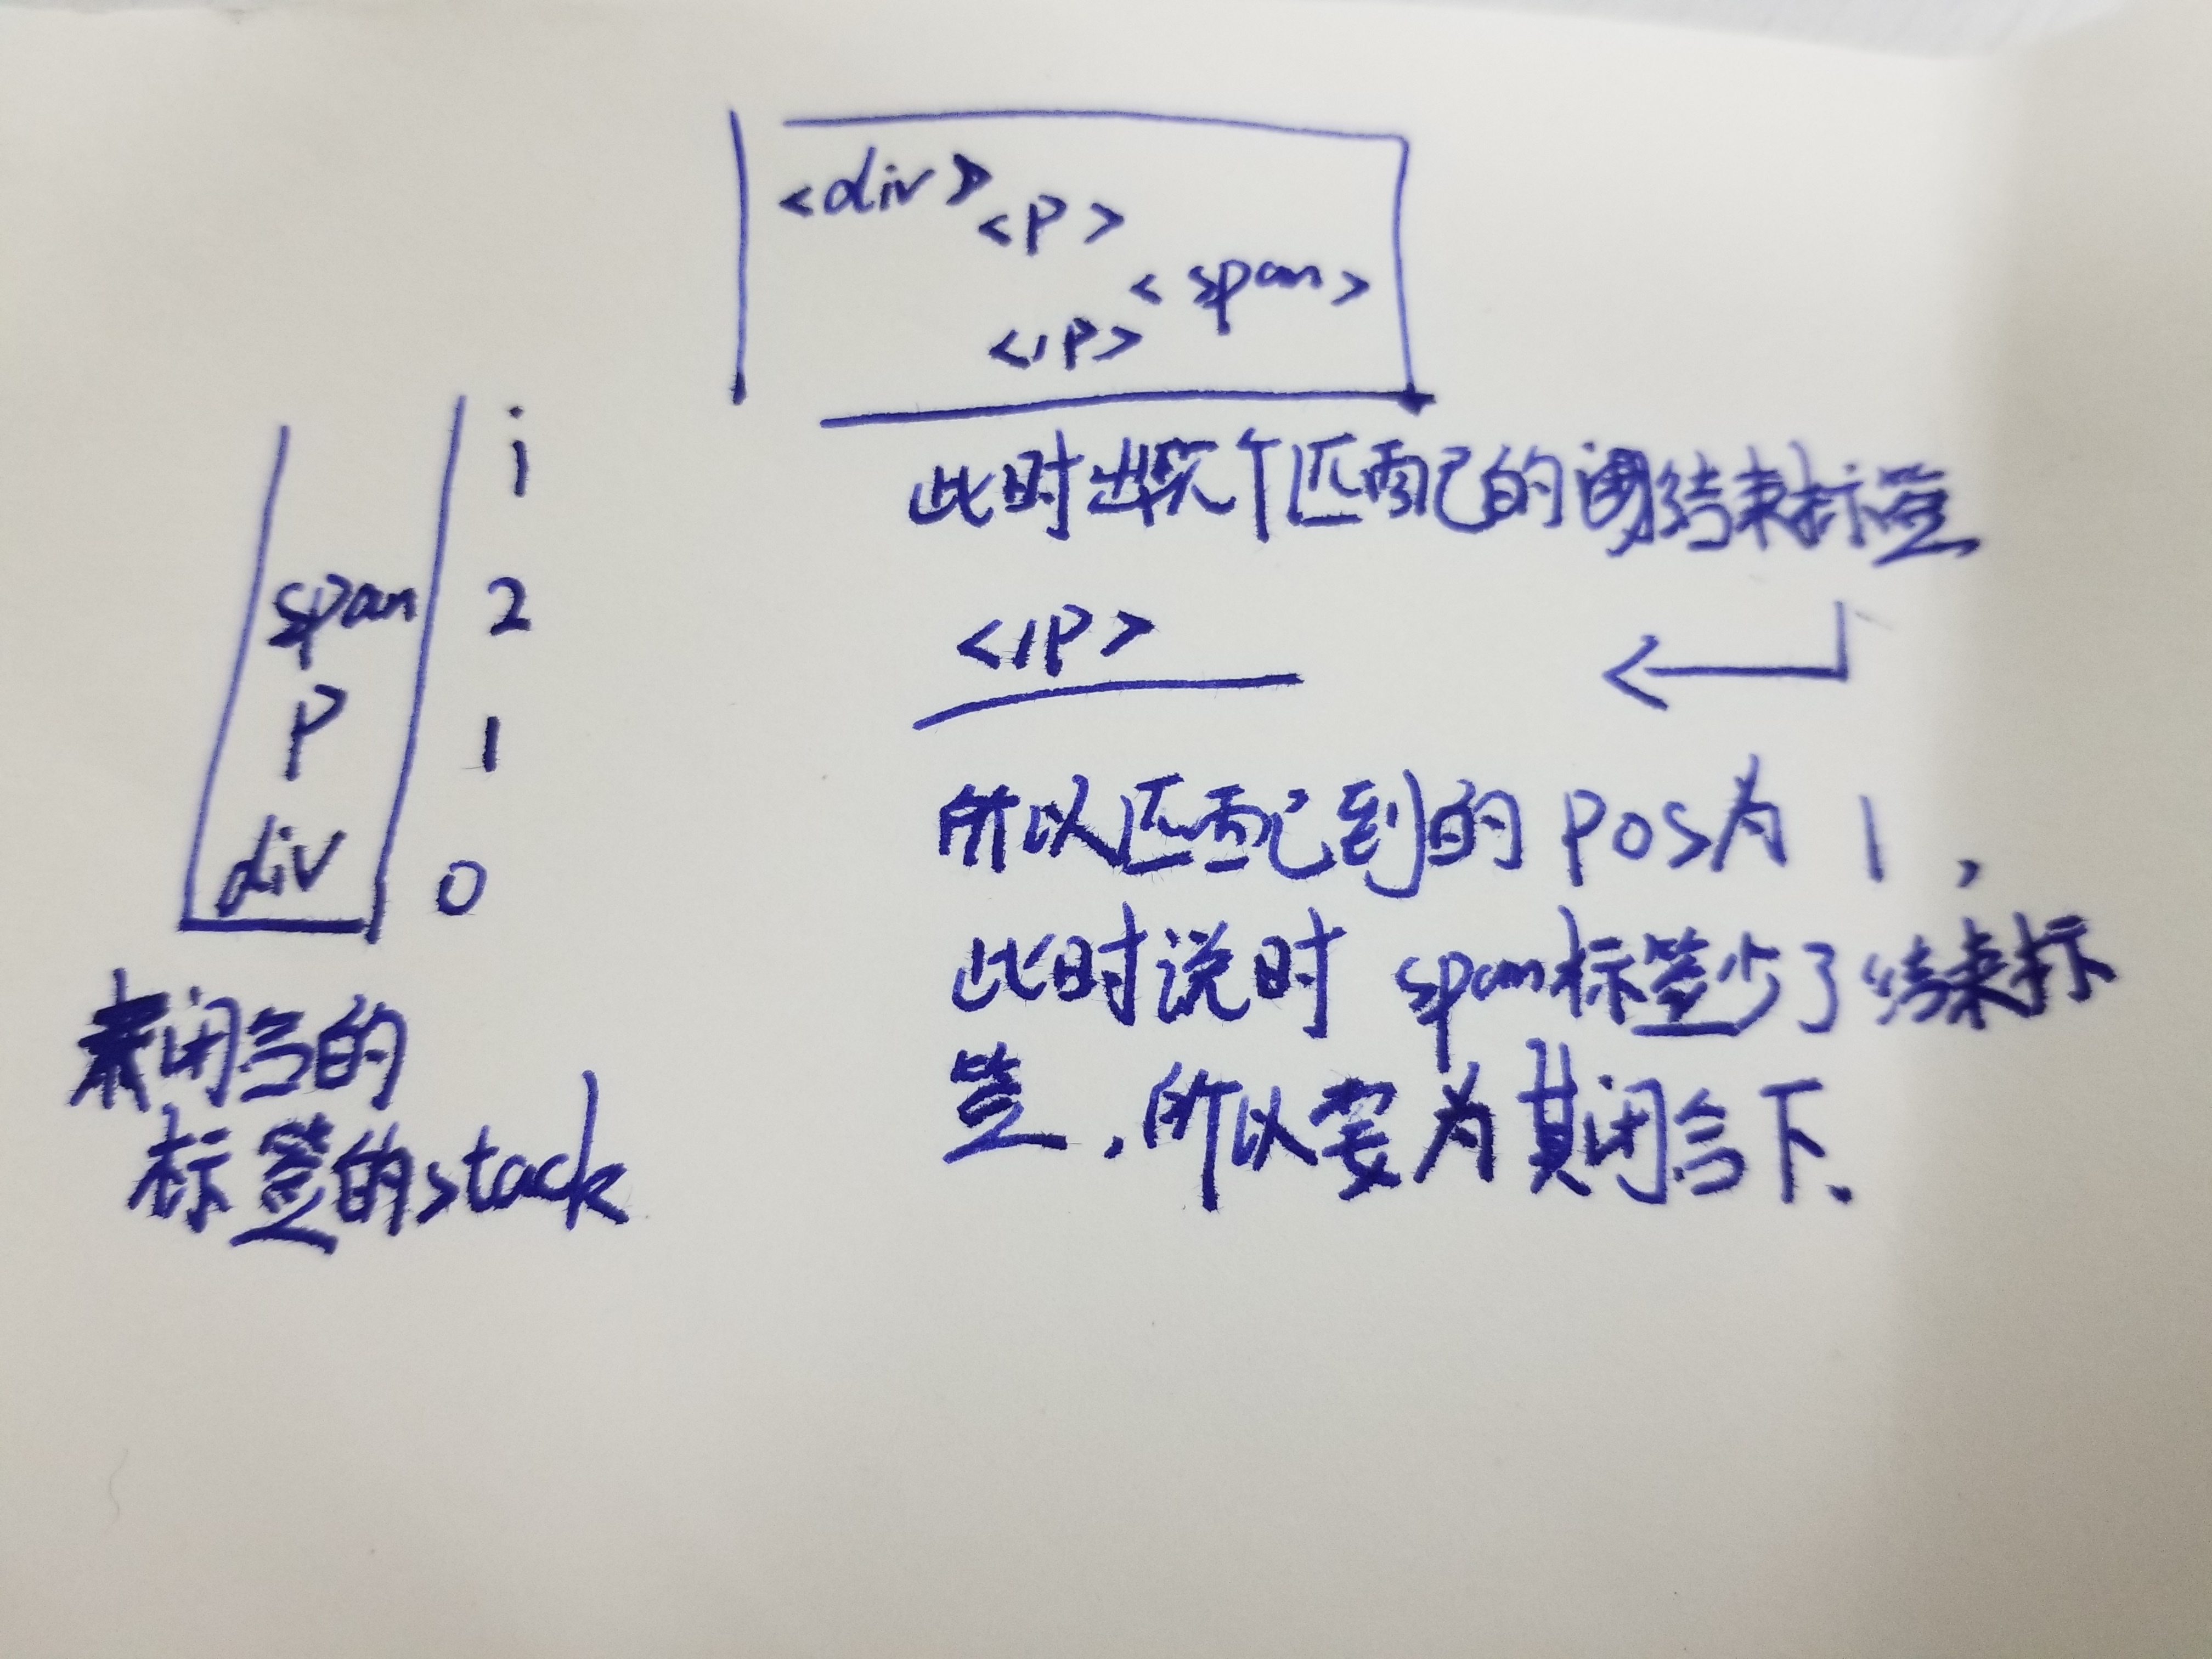 <div>
<p>
<span>
</p>
i
span 2
p 1
div 0
未闭合的
标签的stack
此时出现个匹配的结束标签
</p>
所以匹配到的 pos为 1，
此时说时 span标签少了结束标
签，所以要为其闭合下.